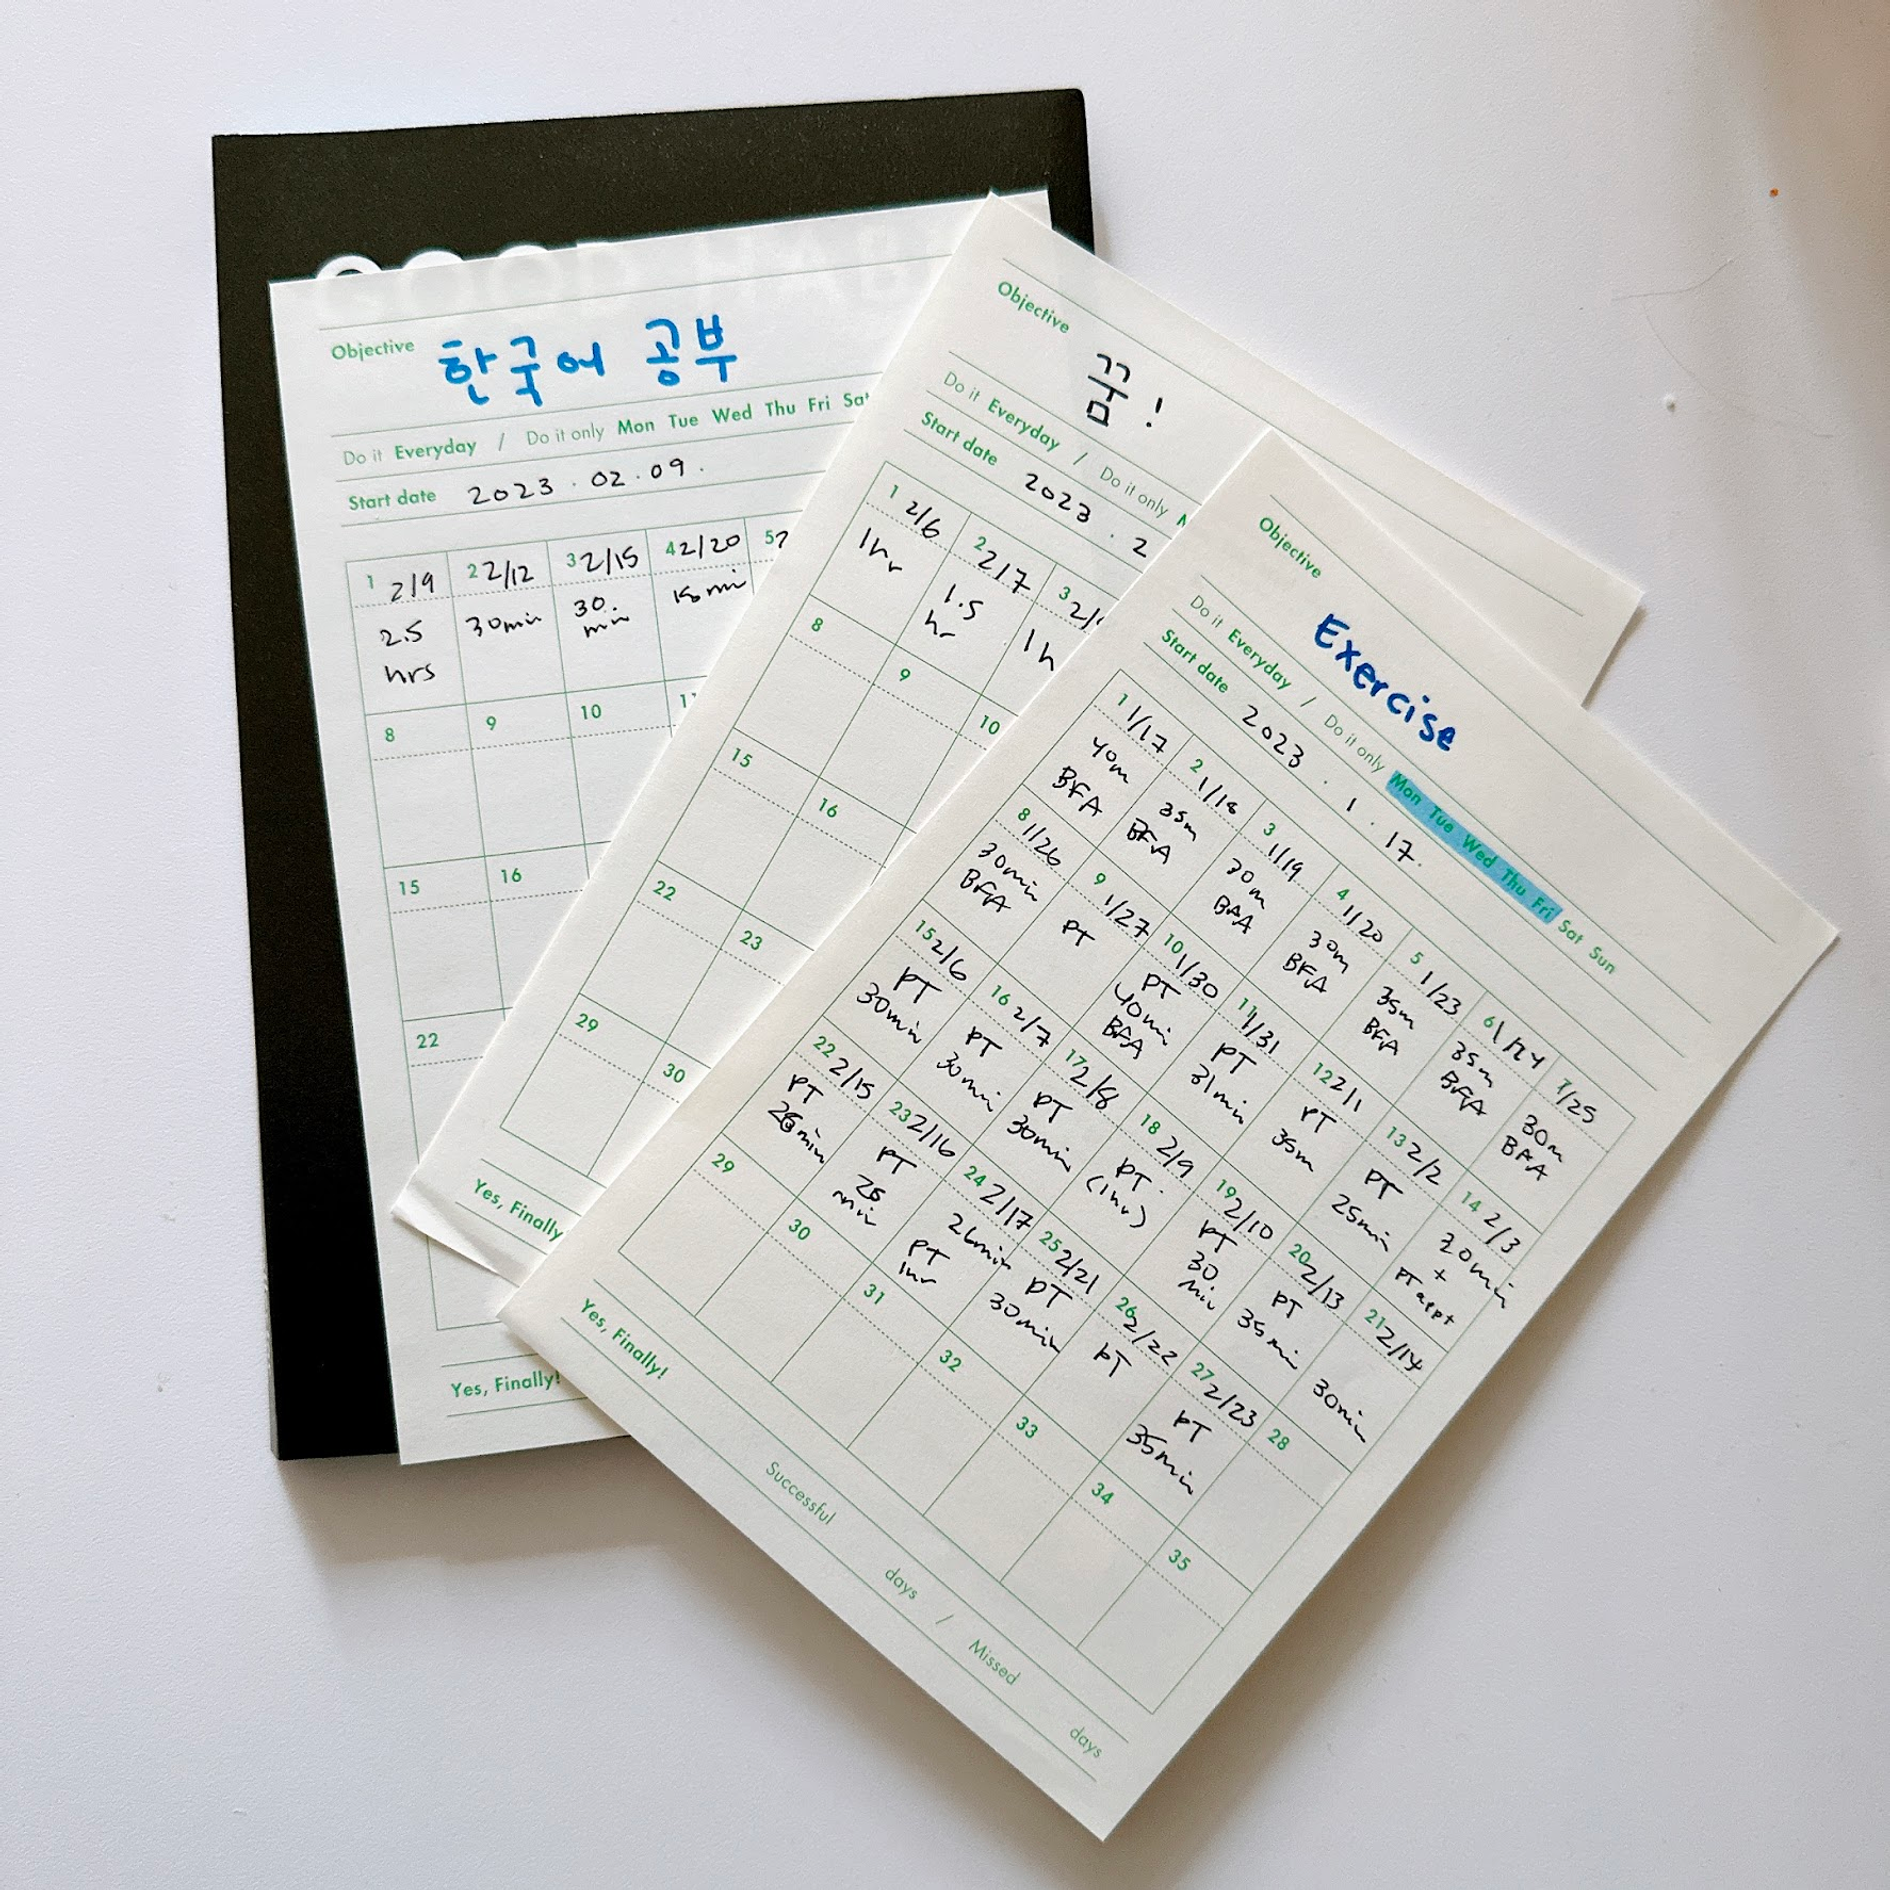 GOOD HAB
Objective 한국어 공부
Do it Everyday / Do it only Mon Tue Wed Thu Fri Sat
Start date 2023 . 02 . 09 .
1 2/9
2.5
hrs
2 2/12
30min
3 2/15
30.
min
4 2/20
15 min
5
8
9
10
15
16
22
Yes, Finally!
Objective 꿈!
Do it Everyday / Do it only
Start date 2023 . 2
1 2/6
1hr
2 2/7
1.5
hr
3 2/
1h
8
9
10
15
16
22
23
29
30
Yes, Finally
Objective Exercise
Do it Everyday / Do it only Mon Tue Wed Thu Fri Sat Sun
Start date 2023 . 1 . 17.
1 1/17
40m
BFA
2 1/18
35m
BFA
3 1/19
30m
BAA
4 1/20
30m
BFA
5 1/23
35m
BFA
6 1/24
35m
BFA
7 1/25
30m
BFA
8 1/26
30min
BFA
9 1/27
PT
10 1/30
PT
40min
BFA
11 1/31
PT
31min
12 2/1
PT
35m
13 2/2
PT
25min
14 2/3
20min
+
PT appt
15 2/6
PT
30min
16 2/7
PT
30min
17 2/8
PT
30min
18 2/9
PT
(1hr)
19 2/10
PT
30
min
20 2/13
PT
35min
21 2/14
30min
22 2/15
PT
26min
23 2/16
PT
25
min
24 2/17
26min
PT
1hr
25 2/21
PT
30min
26 2/22
PT
27 2/23
PT
35min
28
29
30
31
32
33
34
35
Yes, Finally!
Successful days / Missed days